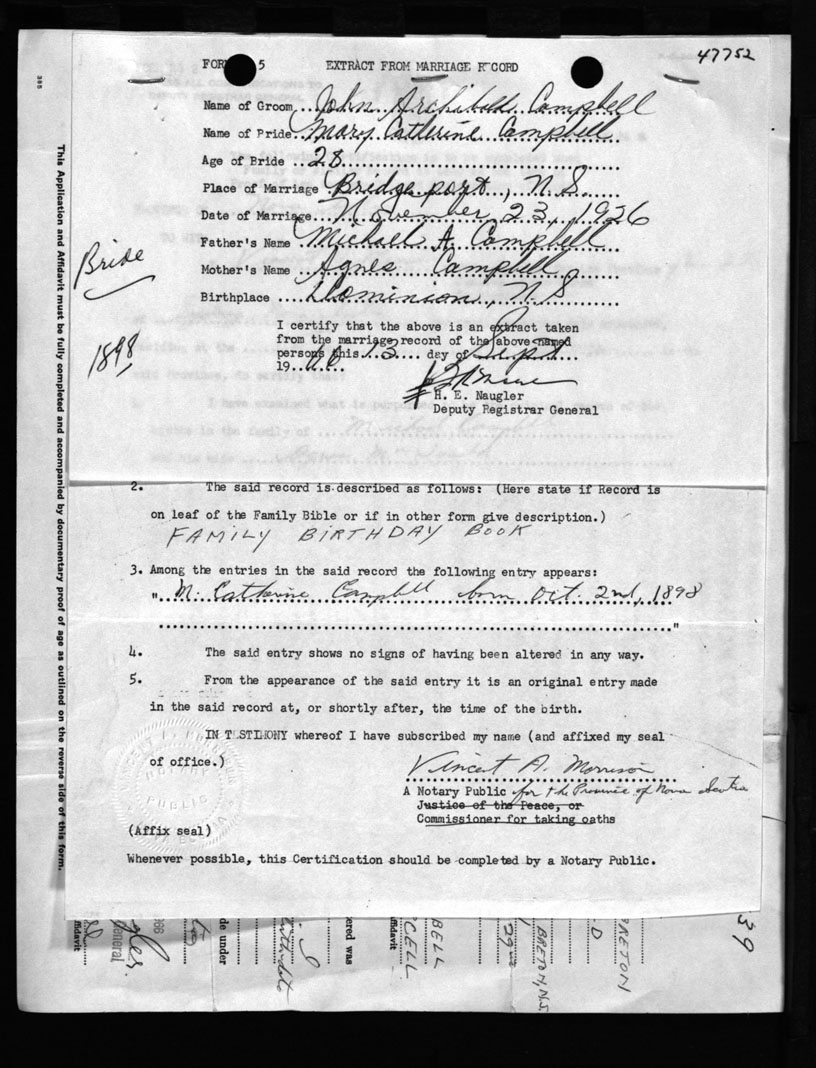 47752
FOR 5 EXTRACT FROM MARRIAGE R CORD
Name of Groom..John Archibald Campbell
Name of Pride..Mary Catherine Campbell
Age of Bride ..28
Place of Marriage Bridgeport, N.S.
Date of Marriage..November 23, 1926
Father's Name .Michael A. Campbell
Mother's Name ..Agnes Campbell
Birthplace ....Dominion, N.S
Bride
1898
I certify that the above is an extract taken
from the marriage record of the above named
persons this..13.... day of Sept
19..66....
H. E. Naugler
Deputy Registrar General
2. The said record is described as follows: (Here state if Record is
on leaf of the Family Bible or if in other form give description.)
FAMILY BIRTHDAY BOOK
3. Among the entries in the said record the following entry appears:
"..M. Catherine Campbell born Oct. 2nd, 1898
"
4. The said entry shows no signs of having been altered in any way.
5. From the appearance of the said entry it is an original entry made
in the said record at, or shortly after, the time of the birth.
IN T STIMONY whereof I have subscribed my name (and affixed my seal
of office.)
Vincent A. Morrison
A Notary Public for the Province of Nova Scotia
Justice of the Peace, or
Commissioner for taking oaths
(Affix seal)
NOTARY
PUBLIC
Whenever possible, this Certification should be completed by a Notary Public.
This Application and Affidavit must be fully completed and accompanied by documentary proof of age as outlined on the reverse side of this form.
ffidavit
General
66
de under
birthdate
ered was
ffidavit
CELL
BELL
29
BRETON, N.S.
D
BRETON
39